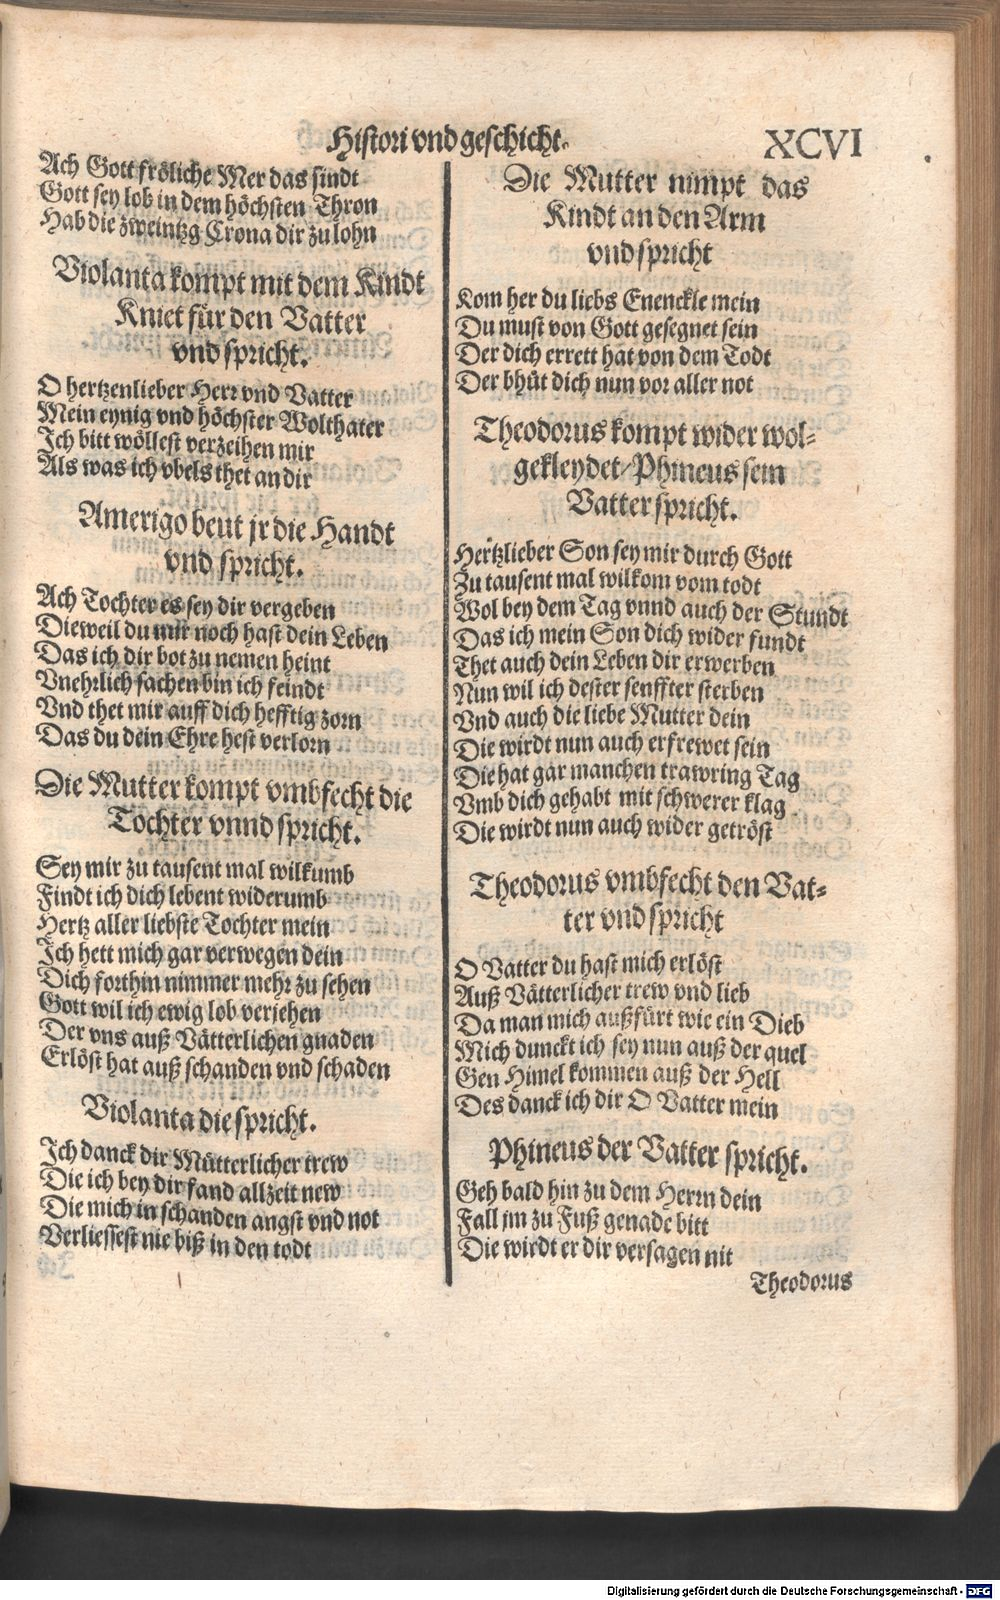 Histori vnd geschicht.
XCVI
Ach Gott fröliche Mer das sindt
Gott sey lob in dem höchsten Thron
Hab die zweintzg Crona dir zu lohn
Violanta kompt mit dem Kindt
Kniet für den Vatter
vnd spricht.
O hertzenlieber Herr vnd Vatter
Mein eynig vnd höchster Wolthater
Ich bitt wöllest verzeihen mir
Als was ich vbels thet an dir
Amerigo beut jr die Handt
vnd spricht.
Ach Tochter es sey dir vergeben
Dieweil du mir noch hast dein Leben
Das ich dir bot zu nemen heint
Vnehrlich sachen bin ich feindt
Vnd thet mir auff dich hefftig zorn
Das du dein Ehre hest verlorn
Die Mutter kompt vmbfecht die
Tochter vnnd spricht.
Sey mir zu tausent mal wilkumb
Findt ich dich lebent widerumb
Hertz aller liebste Tochter mein
Ich hett mich gar verwegen dein
Dich forthin nimmer mehr zu sehen
Gott wil ich ewig lob verjehen
Der vns auß Vätterlichen gnaden
Erlöst hat auß schanden vnd schaden
Violanta die spricht.
Ich danck dir Mütterlicher trew
Die ich bey dir fand allzeit new
Die mich in schanden angst vnd not
Verliessest nie biß in den todt
Die Mutter nimpt das
Kindt an den Arm
vnd spricht
Kom her du liebs Enenckle mein
Du must von Gott gesegnet sein
Der dich errett hat von dem Todt
Der bhüt dich nun vor aller not
Theodorus kompt wider wol-
gekleydet/ Phineus sein
Vatter spricht.
Hertzlieber Son sey mir durch Gott
Zu tausent mal wilkom vom todt
Wol bey dem Tag vnnd auch der Stundt
Das ich mein Son dich wider fundt
Thet auch dein Leben dir erwerben
Nun wil ich dester senffter sterben
Vnd auch die liebe Mutter dein
Die wirdt nun auch erfrewet sein
Die hat gar manchen trawring Tag
Vmb dich gehabt mit schwerer klag
Die wirdt nun auch wider getröst
Theodorus vmbfecht den Vat-
ter vnd spricht
O Vatter du hast mich erlöst
Auß Vätterlicher trew vnd lieb
Da man mich außfürt wie ein Dieb
Mich dunckt ich sey nun auß der quel
Gen Himel kommen auß der Hell
Des danck ich dir O Vatter mein
Phineus der Vatter spricht.
Geh bald hin zu dem Herrn dein
Fall jm zu Fuß genade bitt
Die wirdt er dir versagen nit
Theodorus
Digitalisierung gefördert durch die Deutsche Forschungsgemeinschaft - DFG